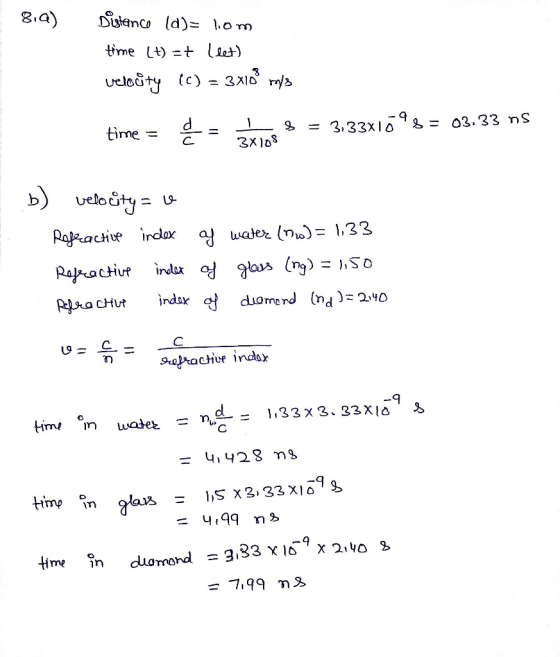 8.a) Distance (d) = 1.0 m
time (t) = t (let)
velocity (c) = 3×10⁸ m/s
time = d/c = 1/3×10⁸ s = 3.33×10⁻⁹ s = 03.33 ns
b) velocity = v
Refractive index of water (nw) = 1.33
Refractive index of glass (ng) = 1.50
Refractive index of diamond (nd) = 2.40
v = c/n = c/refractive index
time in water = nw d/c = 1.33 × 3.33×10⁻⁹ s
= 4.428 ns
time in glass = 1.5 × 3.33×10⁻⁹ s
= 4.99 ns
time in diamond = 3.33 × 10⁻⁹ × 2.40 s
= 7.99 ns